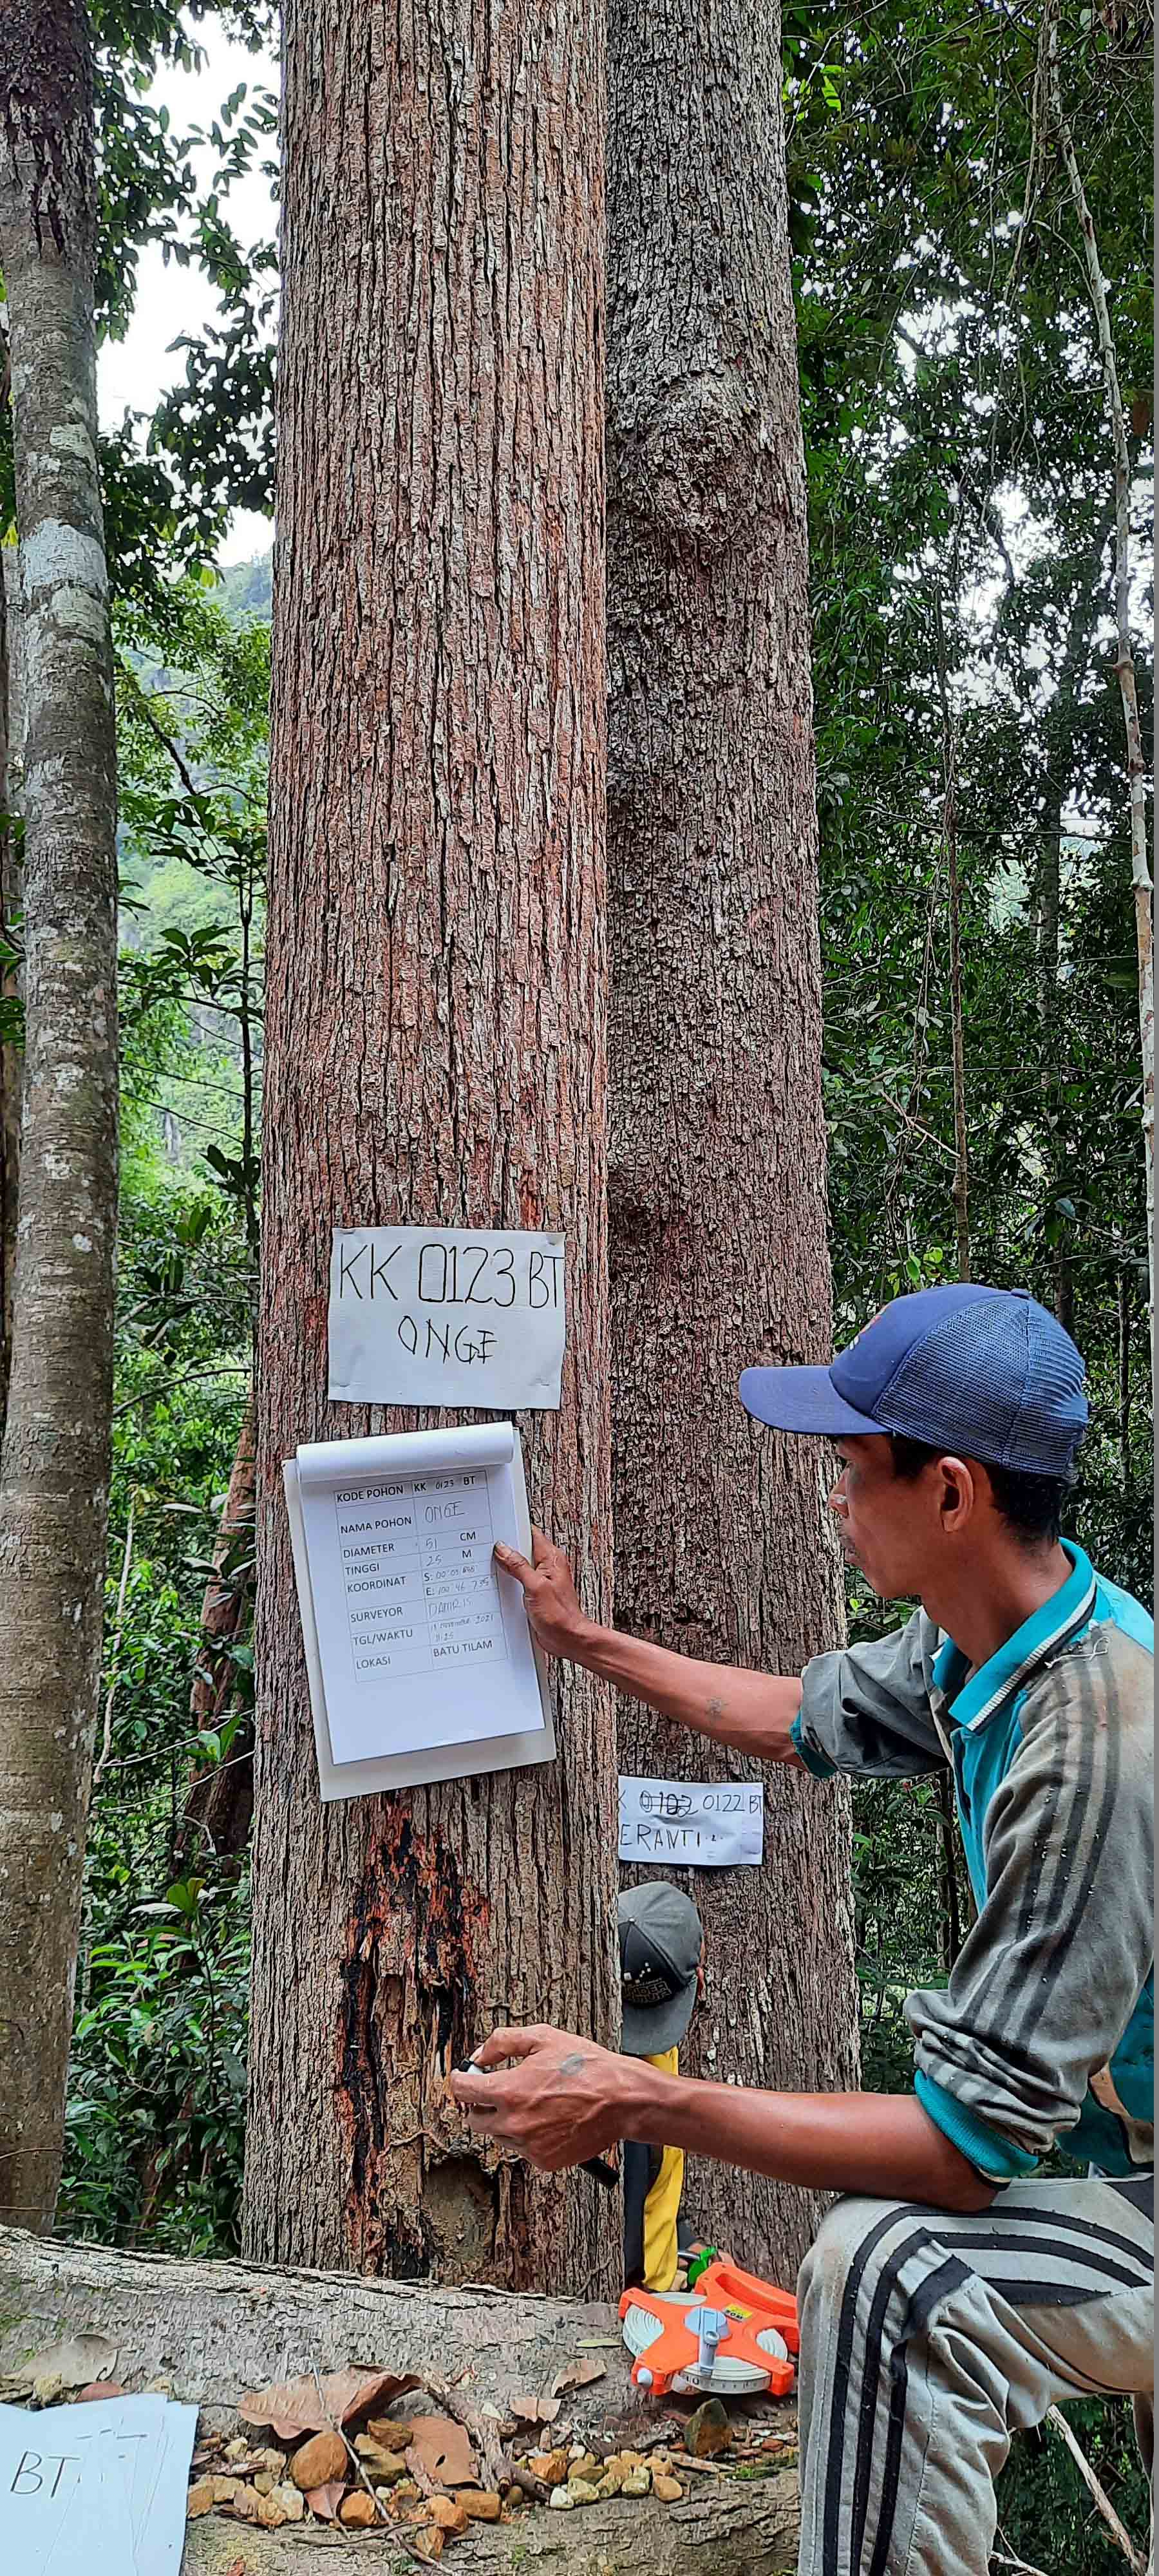 KK 0123 BT
ONGE
KODE POHON KK 0123 BT
NAMA POHON ONGE
DIAMETER 51 CM
TINGGI 25 M
KOORDINAT S:
E: 100° 46'
SURVEYOR DAMRIS
TGL/WAKTU 2021
LOKASI BATU TILAM
0122 BT
ERANTI
BT